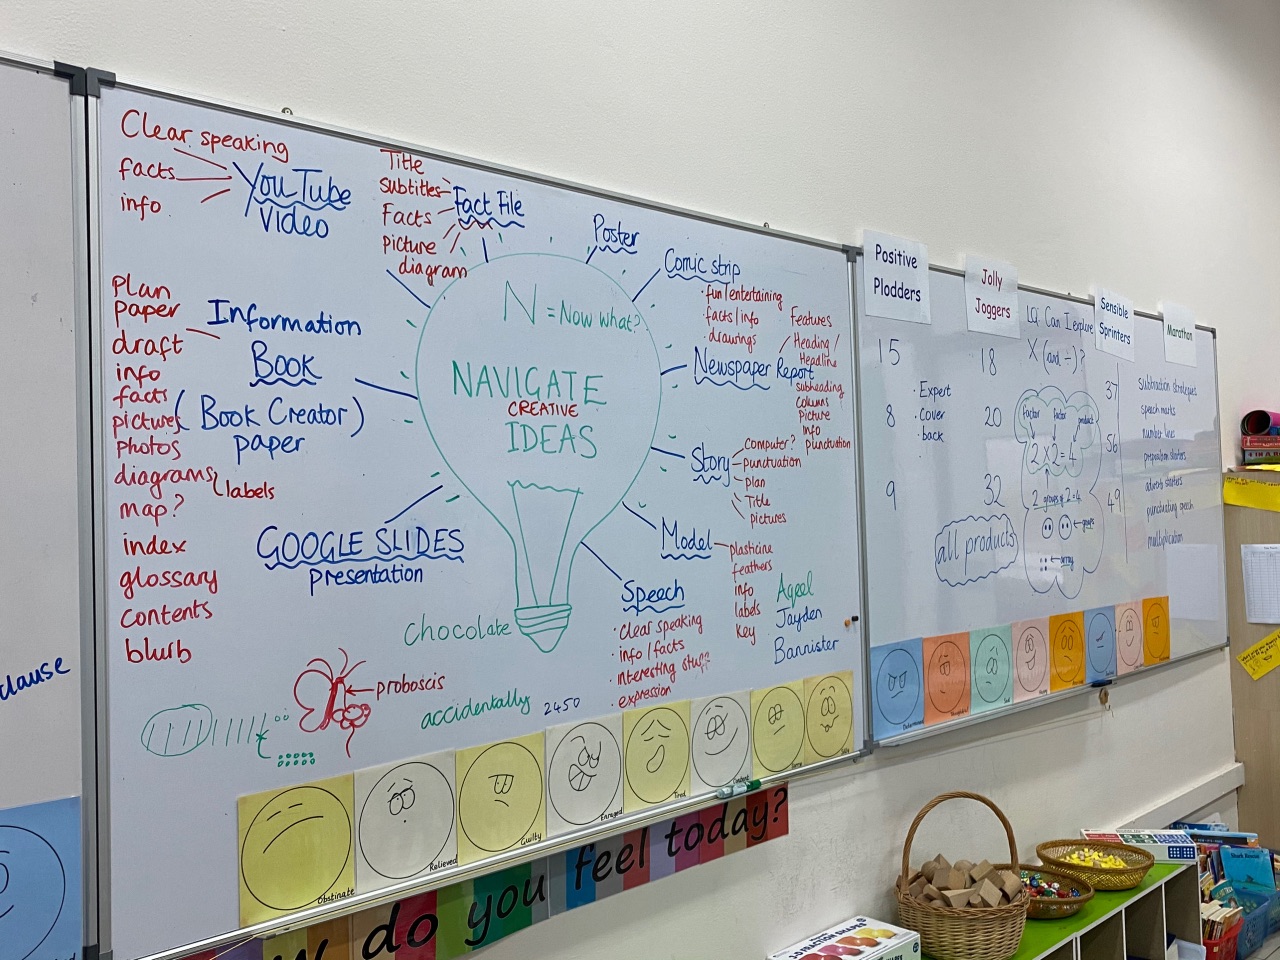 Clear speaking
facts
info
YouTube
Video
Title
Subtitles
Facts
picture
diagram
Fact File
Poster
Comic strip
fun/entertaining
facts/info
drawings
Features
Heading/
Headline
subheading
columns
picture
info
punctuation
Newspaper Report
N = Now what?
NAVIGATE
CREATIVE
IDEAS
plan
paper
draft
info
facts
pictures
photos
diagrams
labels
map?
index
glossary
contents
blurb
Information
Book
(Book Creator)
paper
GOOGLE SLIDES
presentation
Story
computer?
punctuation
plan
Title
pictures
Model
plasticine
feathers
info
labels
key
Speech
clear speaking
info/facts
interesting stuff
expression
Aqeel
Jayden
Bannister
chocolate
proboscis
accidentally
2450
clause
Obstinate
Relieved
Guilty
Enraged
Tired
do you feel today?
Positive
Plodders
Jolly
Joggers
Sensible
Sprinters
Marathon
LQ: Can I explore
X (and ÷)?
15
8
9
Expert
Cover
back
18
20
32
all products
factor factor product
2 x 2 = 4
2 groups of 2 = 4
groups
array
37
56
49
Subtraction strategies
speech marks
number lines
preposition starters
adverb starters
punctuating speech
multiplication